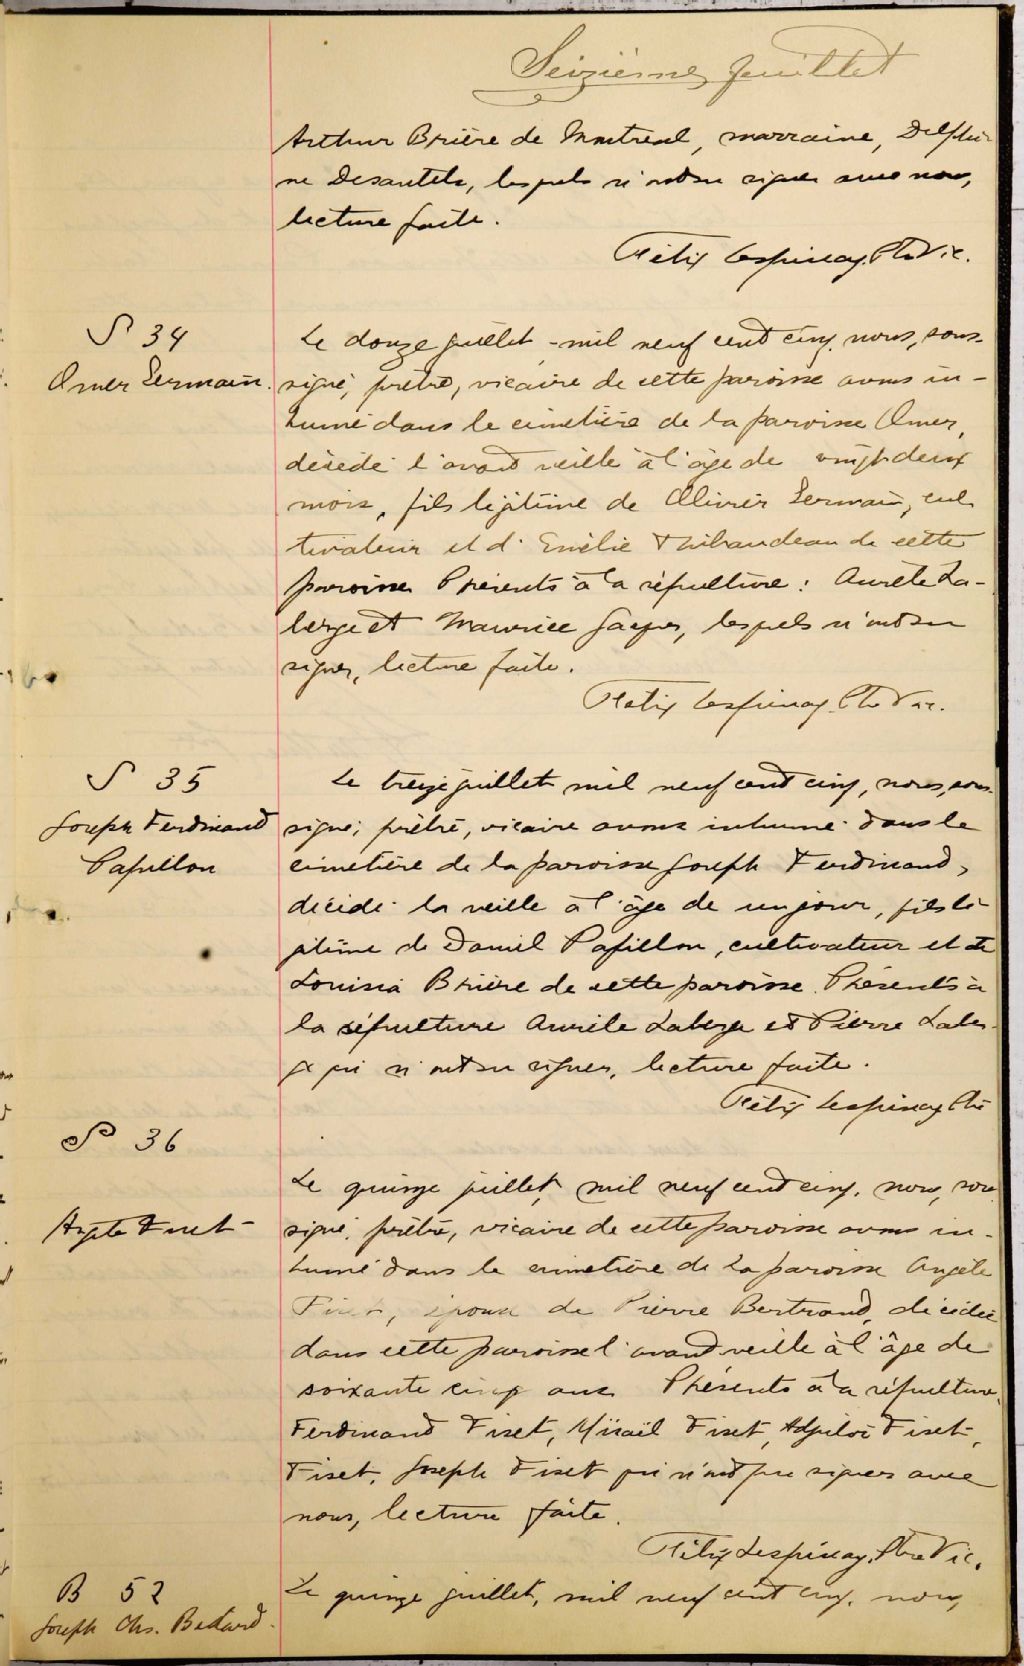 Seizième feuillet
Arthur Brière de Montreal, marraine, Delphi-
ne Desautels, lesquels n'ont su signer avec nous,
lecture faite.
Félix Lespinay, Ptre Vic.
S 34
Omer Germain.
Le douze juillet mil neuf cent cinq, nous, sous-
signé, prêtre, vicaire de cette paroisse avons in-
humé dans le cimetière de la paroisse Omer,
décédé l'avant veille à l'âge de vingt-deux
mois, fils légitime de Olivier Germain, cul
tivateur et d'Emélie Thibaudeau de cette
paroisse Présents à la sépulture: Aurèle La-
berge et Maurice Jacques, lesquels n'ont su
signer, lecture faite.
Félix Lespinay Ptre Vic.
S 35
Joseph Ferdinand
Papillon
Le treize juillet mil neuf cent cinq, nous, sous-
signé, prêtre, vicaire avons inhumé dans le
cimetière de la paroisse Joseph Ferdinand,
décédé la veille à l'âge de un jour, fils lé-
gitime de Daniel Papillon, cultivateur et de
Louisia Brière de cette paroisse. Présents à
la sépulture Aurèle Laberge et Pierre Laber-
ge qui n'ont su signer, lecture faite.
Félix Lespinay Ptre
S 36
Angèle Fiset
Le quinze juillet, mil neuf cent cinq, nous, sous
signé, prêtre, vicaire de cette paroisse avons in-
humé dans le cimetière de la paroisse Angèle
Fiset, épouse de Pierre Bertrand, décédée
dans cette paroisse l'avant veille à l'âge de
soixante cinq ans Présents à la sépulture,
Ferdinand Fiset, Misaël Fiset, Fiset,
Fiset, Joseph Fiset qui n'ont pu signer avec
nous, lecture faite.
Félix Lespinay, Ptre Vic.
B 52
Joseph Chs. Bedard.
Le quinze juillet, mil neuf cent cinq, nous,